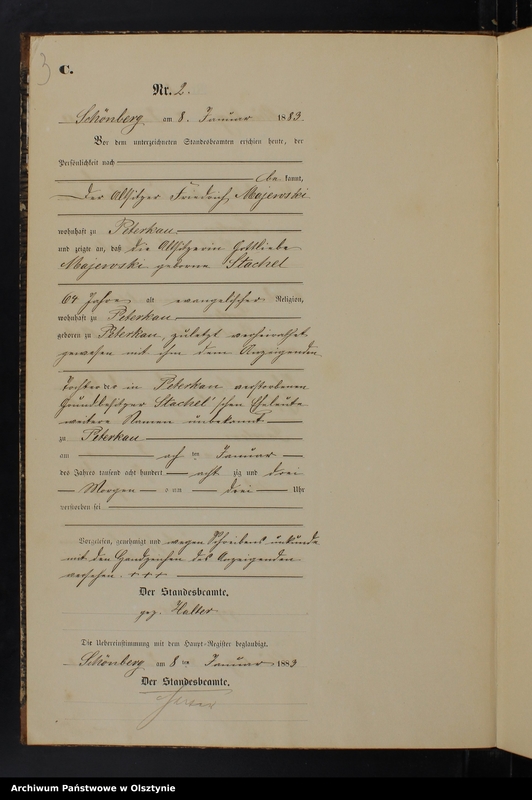 3
C.
Nr. 2.
Schönberg am 8. Januar 1883.
Vor dem unterzeichneten Standesbeamten erschien heute, der
Persönlichkeit nach
be kannt,
der Altsitzer Friedrich Majewski
wohnhaft zu Peterkau
und zeigte an, daß die Altsitzerin Gottliebe
Majewski geborne Stachel
64 Jahre alt evangelischer Religion,
wohnhaft zu Peterkau
geboren zu Peterkau, zuletzt verheirathet
gewesen mit ihm dem Anzeigenden
Tochter der in Peterkau verstorbenen
Grundbesitzer Stachel'schen Eheleute
weitere Namen unbekannt
zu Peterkau
am ach ten Januar
des Jahres tausend acht hundert acht zig und drei
Morgens um drei Uhr
verstorben sei
Vorgelesen, genehmigt und wegen Schreibens unkunde
mit den Handzeichen des Anzeigenden
versehen. + + +
Der Standesbeamte.
gez. Halter
Die Uebereinstimmung mit dem Haupt-Register beglaubigt.
Schönberg am 8 ten Januar 1883
Der Standesbeamte.
Archiwum Państwowe w Olsztynie